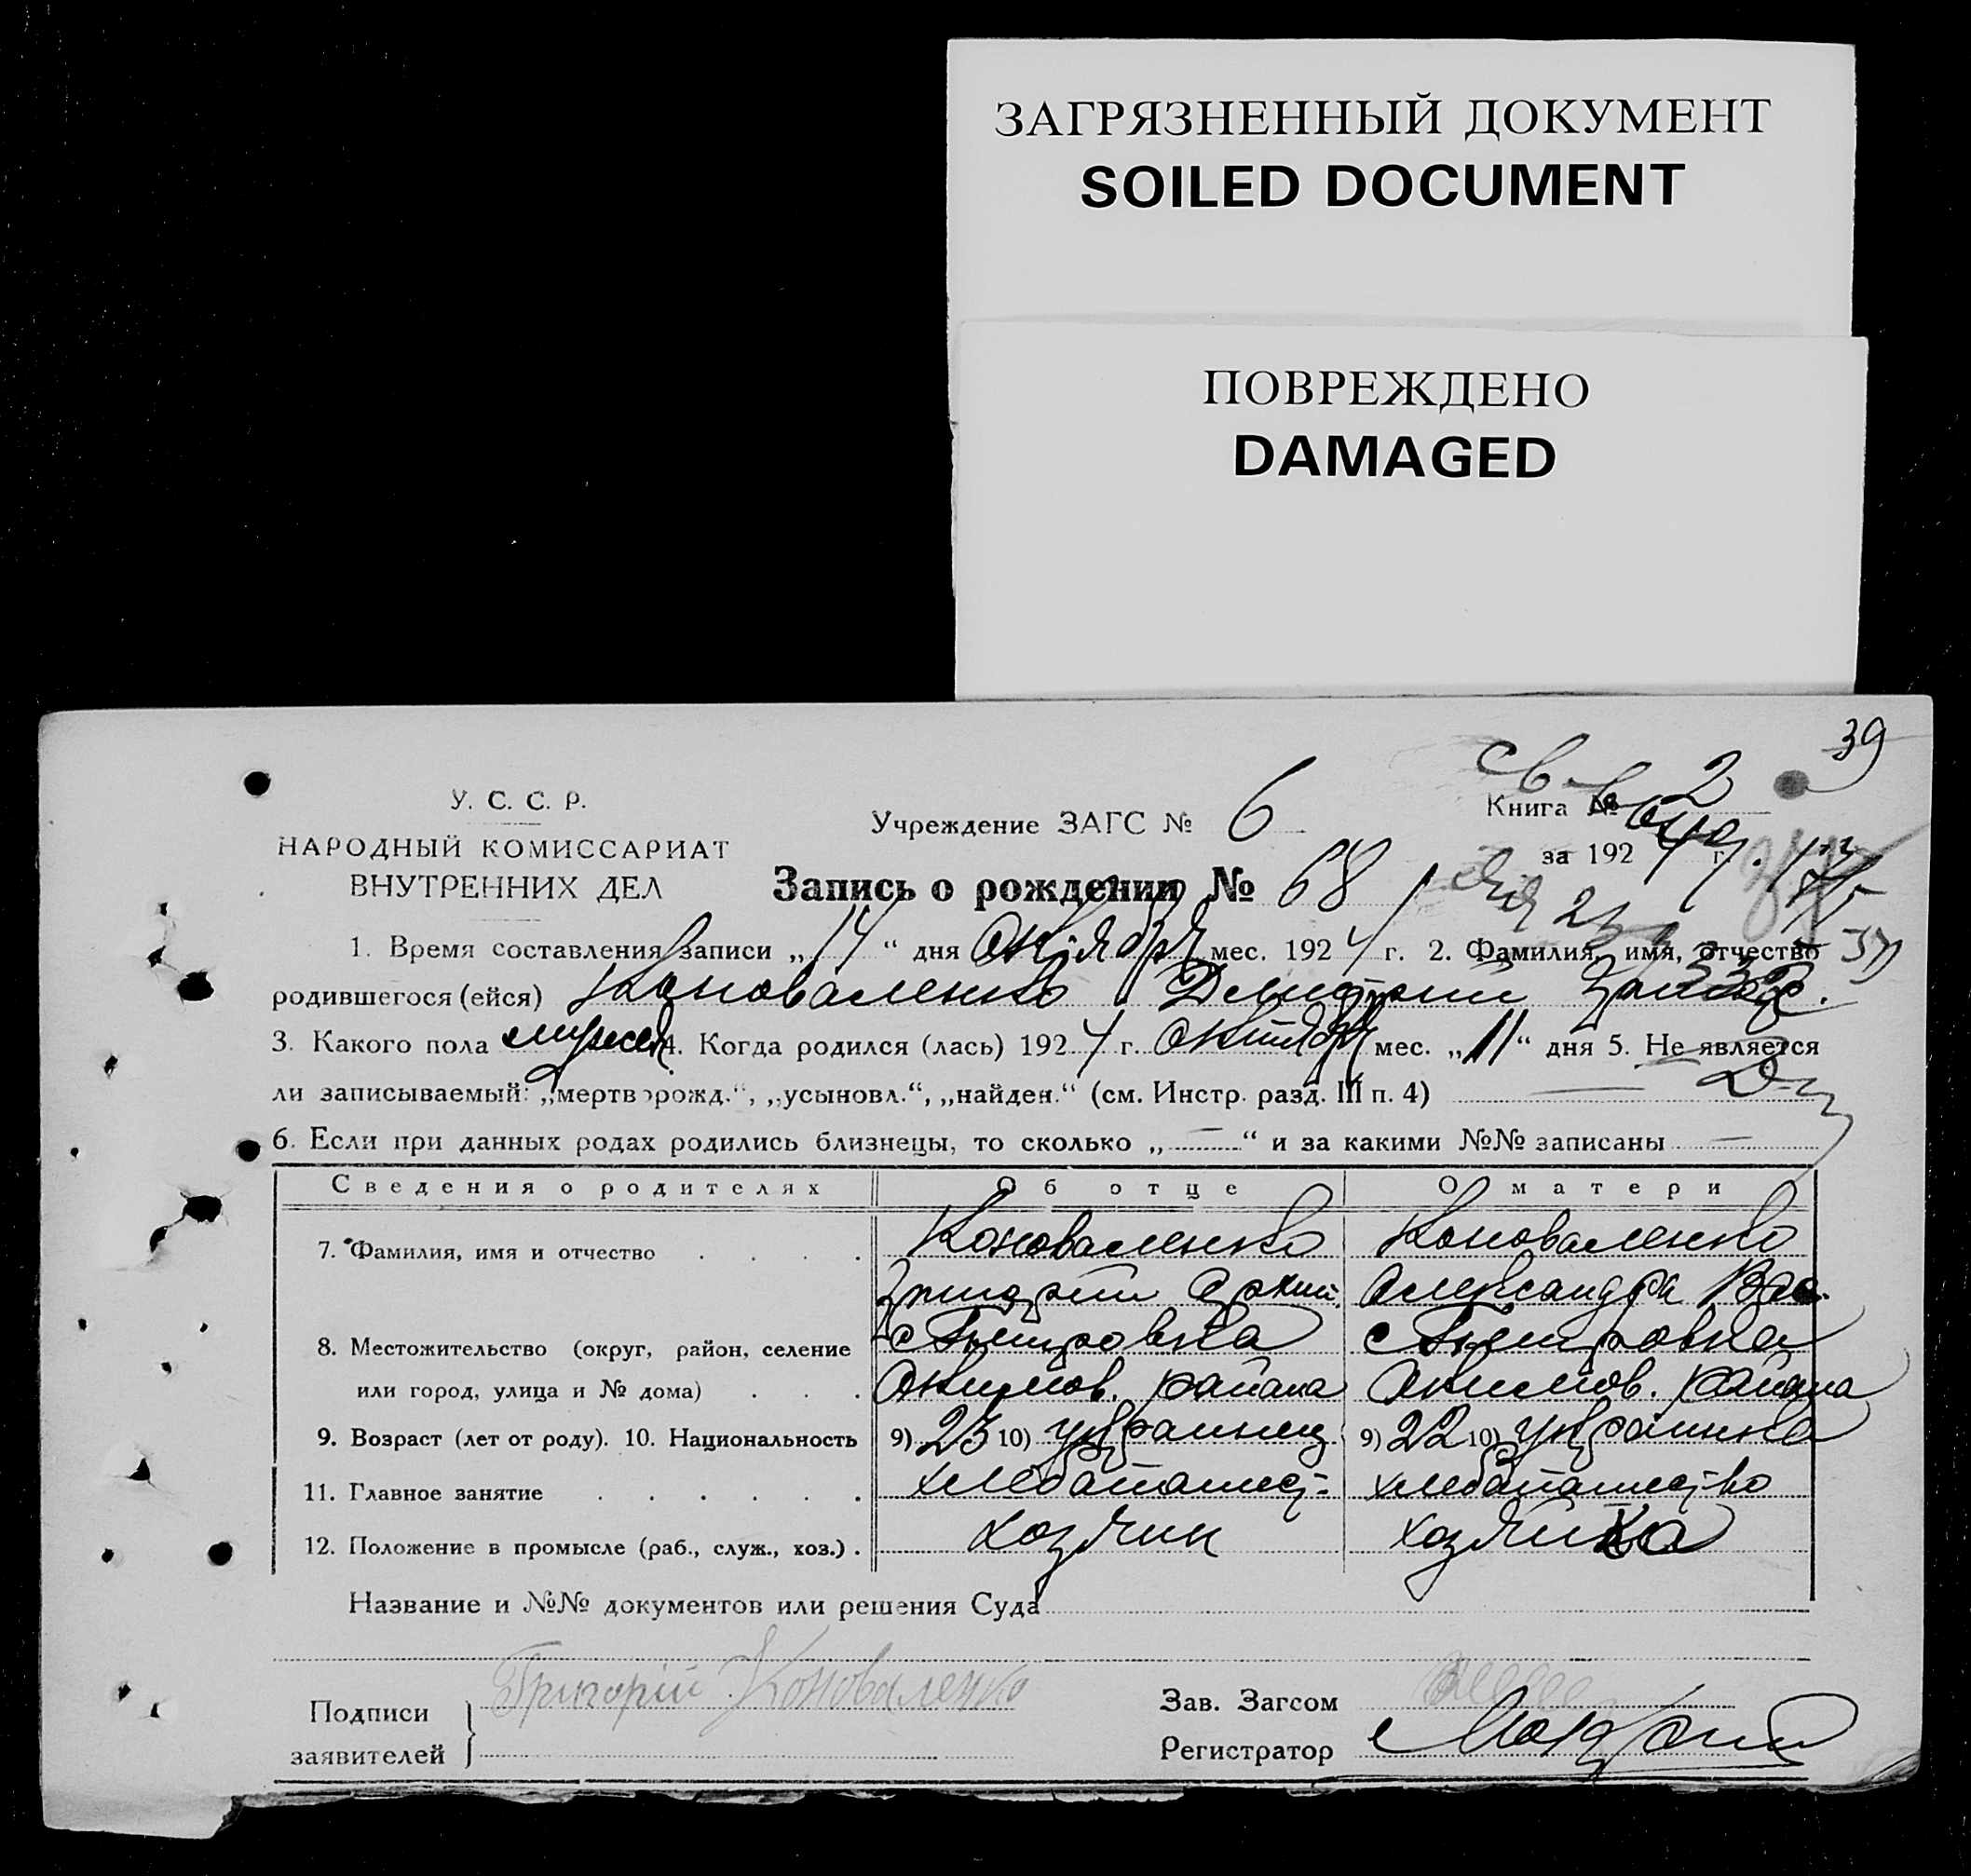 ЗАГРЯЗНЕННЫЙ ДОКУМЕНТ
SOILED DOCUMENT
ПОВРЕЖДЕНО
DAMAGED
39
У. С. С. Р.
НАРОДНЫЙ КОМИССАРИАТ
ВНУТРЕННИХ ДЕЛ
Учреждение ЗАГС № 6
Книга № 2
за 1924 г.
Запись о рождении № 68
1. Время составления записи „14“ дня Октября мес. 1924 г. 2. Фамилия, имя, отчество
родившегося (ейся) Коноваленко Дмитрий
3. Какого пола мужск 4. Когда родился (лась) 1924 г. Октября мес. „11“ дня 5. Не является
ли записываемый: „мертворожд.“, „усыновл.“, „найден.“ (см. Инстр. разд. III п. 4) —
6. Если при данных родах родились близнецы, то сколько „—“ и за какими №№ записаны —
Сведения о родителях Об отце О матери
7. Фамилия, имя и отчество . . . . Коноваленко Коноваленко
Григорий Архип. Александра Вас.
8. Местожительство (округ, район, селение с Петровка с Петровка
или город, улица и № дома) . . . Акимов. района Акимов. района
9. Возраст (лет от роду). 10. Национальность 9) 23 10) украинец 9) 22 10) украинка
11. Главное занятие . . . . . . хлебопашес- хлебопашество
12. Положение в промысле (раб., служ., хоз.) . хозяин хозяйка
Название и №№ документов или решения Суда
Подписи
заявителей
Григорій Коноваленко
Зав. Загсом
Регистратор